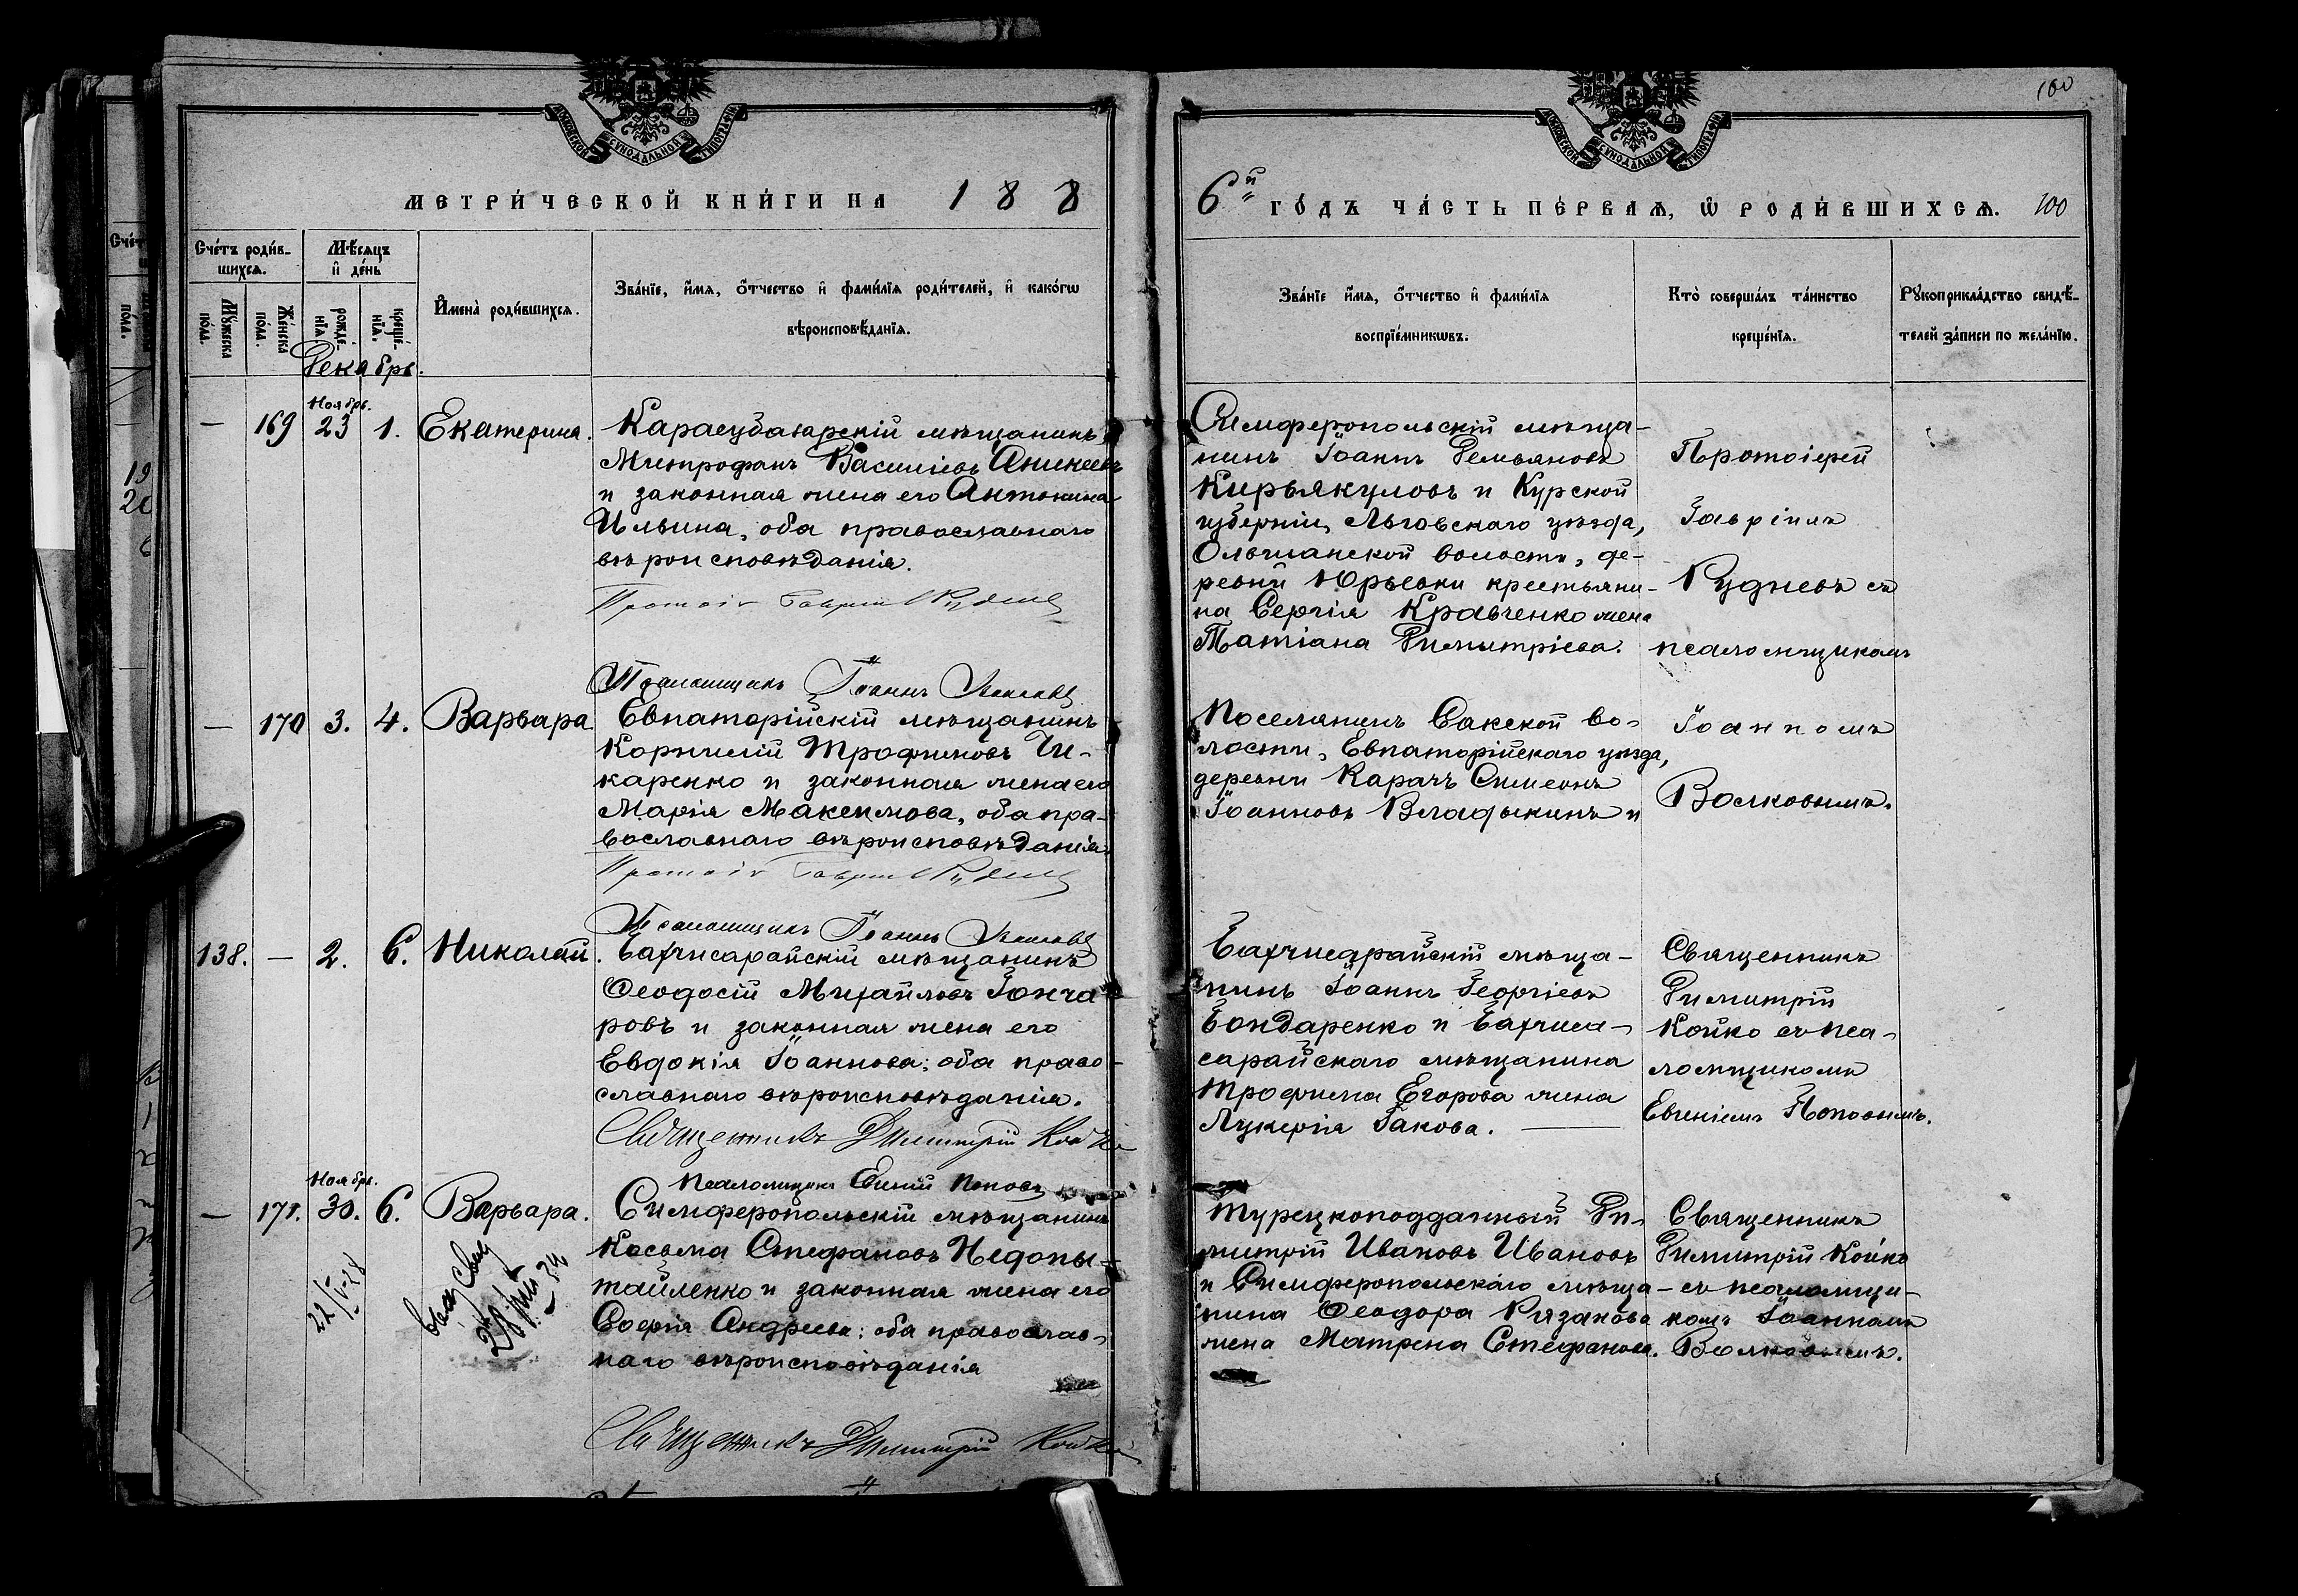 100
МОСКОВСКОЙ СѴНОДАЛЬНОЙ ТИПОГРАФІИ
МОСКОВСКОЙ СѴНОДАЛЬНОЙ ТИПОГРАФІИ
МЕТРИ́ЧЕСКОЙ КНИ́ГИ НА 188
6й ГО́ДЪ ЧА́СТЬ ПЕ́РВАЯ, Ѡ РОДИ́ВШИХСЯ. 100
Сче́тъ роди́в-
шихся.
Мꙋ́жеска
по́ла.
Же́нска
по́ла.
Мѣ́сяцъ
и де́нь
рожде́-
нїя.
креще́-
нїя.
Декабрь.
Имена̀ роди́вшихся.
Зва́нїе, и́мя, о́тчество и фами́лїя роди́телей, и како́гѡ
вѣроисповѣ́данїя.
Зва́нїе и́мя, о́тчество и фами́лїя
воспрїе́мникѡвъ.
Кто̀ соверша́лъ та́инство
креще́нїя.
Рꙋкоприкла́дство свидѣ́-
телей за́писи по жела́нїю.
— 169 Ноябрь. 23 1. Екатерина.
Карасубазарскій мѣщанинъ
Митрофанъ Василіевъ Аникеевъ
и законная жена его Антонина
Ильина, оба православнаго
вѣроисповѣданія.
Протоіе Гавріилъ Рудневъ
Псаломщикъ Іоаннъ Волковъ
Симферопольскій мѣща-
нинъ Іоаннъ Демьяновъ
Кирьякуловъ и Курской
губерніи, Льговскаго уѣзда,
Ольшанской волости, де-
ревни Юрьевки крестьяни-
на Сергія Кравченко жена
Татіана Димитріева.
Протоіерей
Гавріилъ
Рудневъ съ
псаломщикомъ
— 170 3. 4. Варвара
Евпаторійскій мѣщанинъ
Корнилій Трофимовъ Чи-
каренко и законная жена его
Марія Максимова, оба пра-
вославнаго вѣроисповѣданія.
Протоіе Гавріилъ Рудневъ
Псаломщикъ Іоаннъ Волковъ
Поселянинъ Сакской во-
лости, Евпаторійскаго уѣзда,
деревни Карачъ Симеонъ
Іоанновъ Владыкинъ и
Іоанномъ
Волковымъ.
138. — 2. 6. Николай.
Бахчисарайскій мѣщанинъ
Ѳеодосій Михайловъ Гонча-
ровъ и законная жена его
Евдокія Іоаннова; оба право-
славнаго вѣроисповѣданія.
Священникъ Димитрій Койко
Псаломщикъ Евгеній Поповъ
Бахчисарайскій мѣща-
нинъ Іоаннъ Георгіевъ
Бондаренко и Бахчиса-
сарайскаго мѣщанина
Трофима Егорова жена
Лукерія Іакова.
Священникъ
Димитрій
Койко съ пса-
ломщикомъ
Евгеніемъ Поповымъ.
— 171. Ноябрь. 30. 6. Варвара.
22/V-28
28/VIII 34
Симферопольскій мѣщанинъ
Косьма Стефановъ Недопы-
тайленко и законная жена его
Софія Андреева; оба православ-
наго вѣроисповѣданія
Священникъ Димитрій Койко
Турецкоподданный Ди-
митрій Ивановъ Ивановъ
и Симферопольскаго мѣща-
нина Ѳеодора Рязанова
жена Матрена Стефанова.
Священникъ
Димитрій Койко
съ псаломщи-
комъ Іоанномъ
Волковымъ.